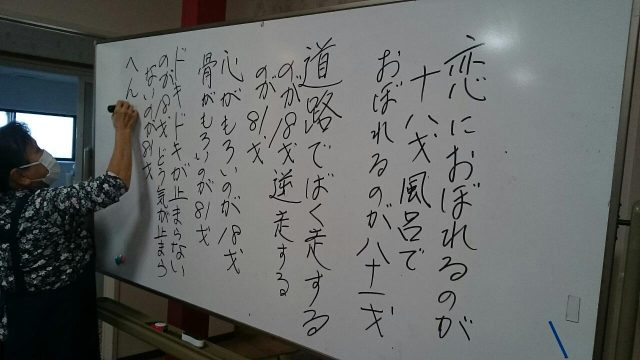 恋におぼれるのが
十八才風呂で
おぼれるのが八十一才
道路でばく走する
のが18才逆走する
のが81才
心がもろいのが18才
骨がもろいのが81才
ドキドキが止まらない
のが18才どう気が止まら
ないのが81才
へん